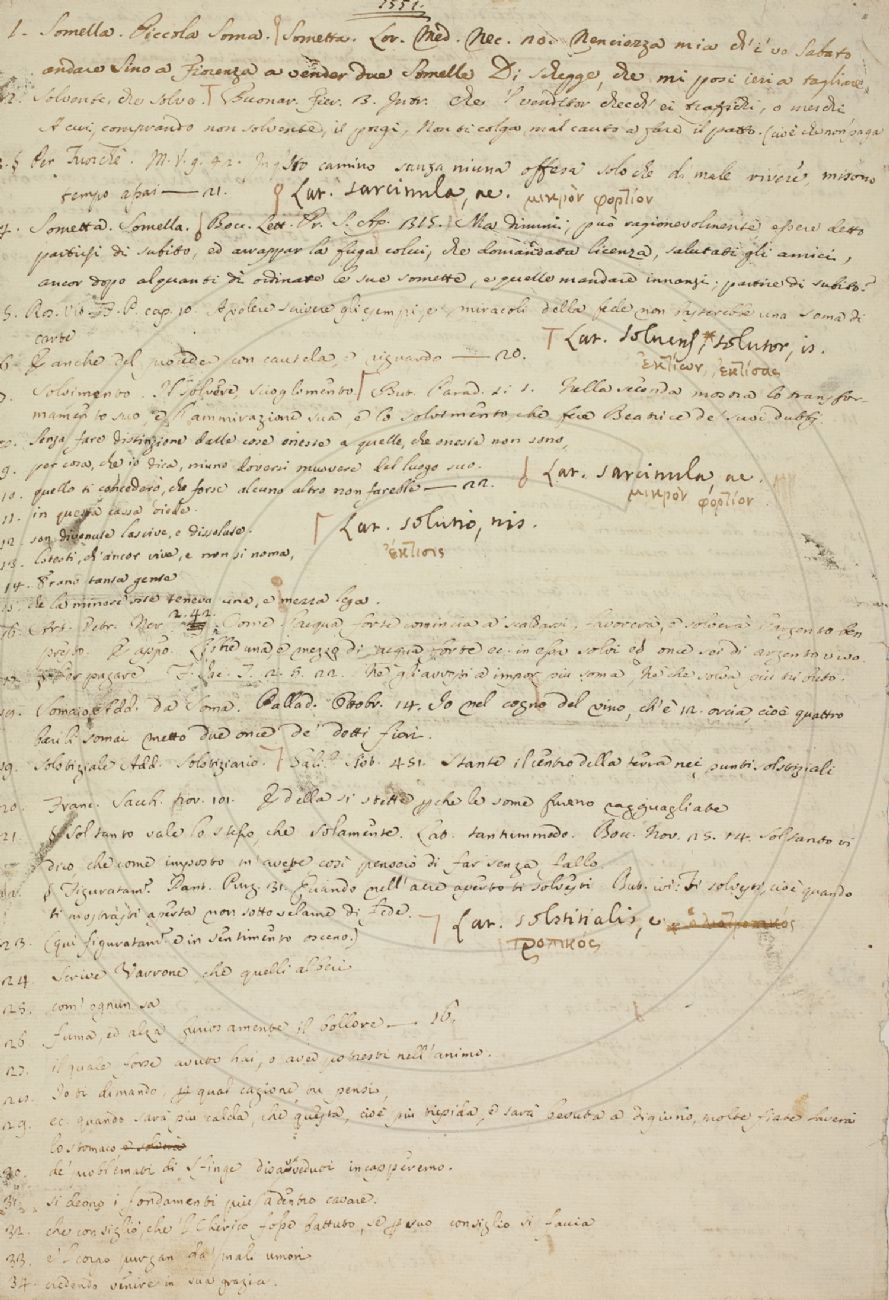 1551.
1. Somella. Piccola Soma. Sometta. Lor. Med. Nec. 20. Nenciozza mia ch' i' vo Sabato
andare sino a Fiorenza a vender due Somelle Di schegge, che mi posi ieri a tagliare
2. Solvente, che solve. Buonar. Fier. 3. Intr. che 'l venditor checch' ei traffichi, o meschi
A cui, comprando non solvente, il pregi, Non ti colga mal cauto a fare il patto. (cioè che non paga
3. § Per Furchè. M. V. 9. 42. camino sanza niuna offesa solo che di male vivere, misono
tempo assai — 21. Lat. sarcinula, ae. μικρὸν φορτίον
4. Sometta. Somella. Bocc. Lett. Pr. S. Ap. 315. Ma dimmi, può ragionevolmente essere detto
partirsi di subito, ed arrappar la fuga colui, che domandata licenza, salutati gli amici,
ancor dopo alquanti dì ordinate le sue somette, e quelle mandate innanzi, partire di subito?
5. cap. 10. A volere scrivere gli esempi, e miracoli della fede non basterebbe una soma di
carte Lat. solvens, solutor, is.
6. E anche del procede con cautela, e riguardo — 20. ἐκτίων, ἐκτίσας
7. Solvimento. Il solvere, scioglimento. But. Parad. 21. 1. Nella seconda mostra lo transfor-
mamento suo, e l'ammirazione sua, e lo solvimento che fece Beatrice de' suoi dubbj.
8. Senza fare distinzione dalle cose oneste a quelle, che oneste non sono,
9. per cosa, che io dica, niuno doversi muovere del luogo suo. Lat. sarcinula, ae.
10. quello ti concederò, che forse alcuno altro non farebbe — 22. μικρὸν φορτίον
11. in questa cassa vide. Lat. solutio, nis.
12. son divenute lascive, e dissolute. ἔκτισις
13. Costoti, ch' ancor vive, e non si noma,
14. Erano tanta gente
15. che la minore oste teneva una, e mezza lega.
16. Art. Vetr. Ner. 2. 42. Come l'acqua forte comincia a scaldarsi, lavorerà, e solverà l'argento ben
presto. E appo. Libre una e mezzo di acqua forte ec. in essa solvi ed once sei di argento vivo.
17. § Per pagare. 2. 5. 22. Nè gli avvezzi a impor più soma Nè che solva più tributo.
18. Somaio Add. da Soma. Pallad. Ottobr. 14. Io nel cogno del vino, ch'è 12. orcia, cioè quattro
barili somai metto due once de' detti fiori.
19. Solstiziale Add. Solstiziario. 451. Stante il centro della terra nei punti solstiziali
20. Franc. Sacch. nov. 101. Ed ella si stette perchè le some furono ragguagliate
21. § Soltanto vale lo stesso, che solamente. Lat. tantummodo. Bocc. Nov. 15. 14. Soltanto vi
dico, che come imposto m' avete così penserò di far senza fallo.
22. § Figuratam. Dant. Purg. 31. Quando nell'aere aperto ti solvesti. But. ivi: Ti solvesti, cioè quando
ti mostrasti aperta non sotto velame di fede. Lat. solstitialis, e
23. (qui figuratam. e in sentimento osceno.) τροπικός
24. Scrive Varrone, che quelli alberi
25. com' ognun sa
26. fuma, ed alza furiosamente il bollore — 16.
27. il quale forse avuto hai, o aver potresti nell'animo.
28. Io ti dimando, per qual cagione tu pensi,
29. ec. quando sarà più calda, che questa, cioè più tiepida, e sarà bevuta a digiuno, molte fiate laverà
lo stomaco
30. de' problemati di Sfinge disavveduti incapperemo.
31. si deono i fondamenti più addentro cavare.
32. che consigliò, che 'l Cherico fosse battuto, se per suo consiglio si faccia
33. e 'l corpo purgan da' mali umori
34. credendo venire in sua grazia.